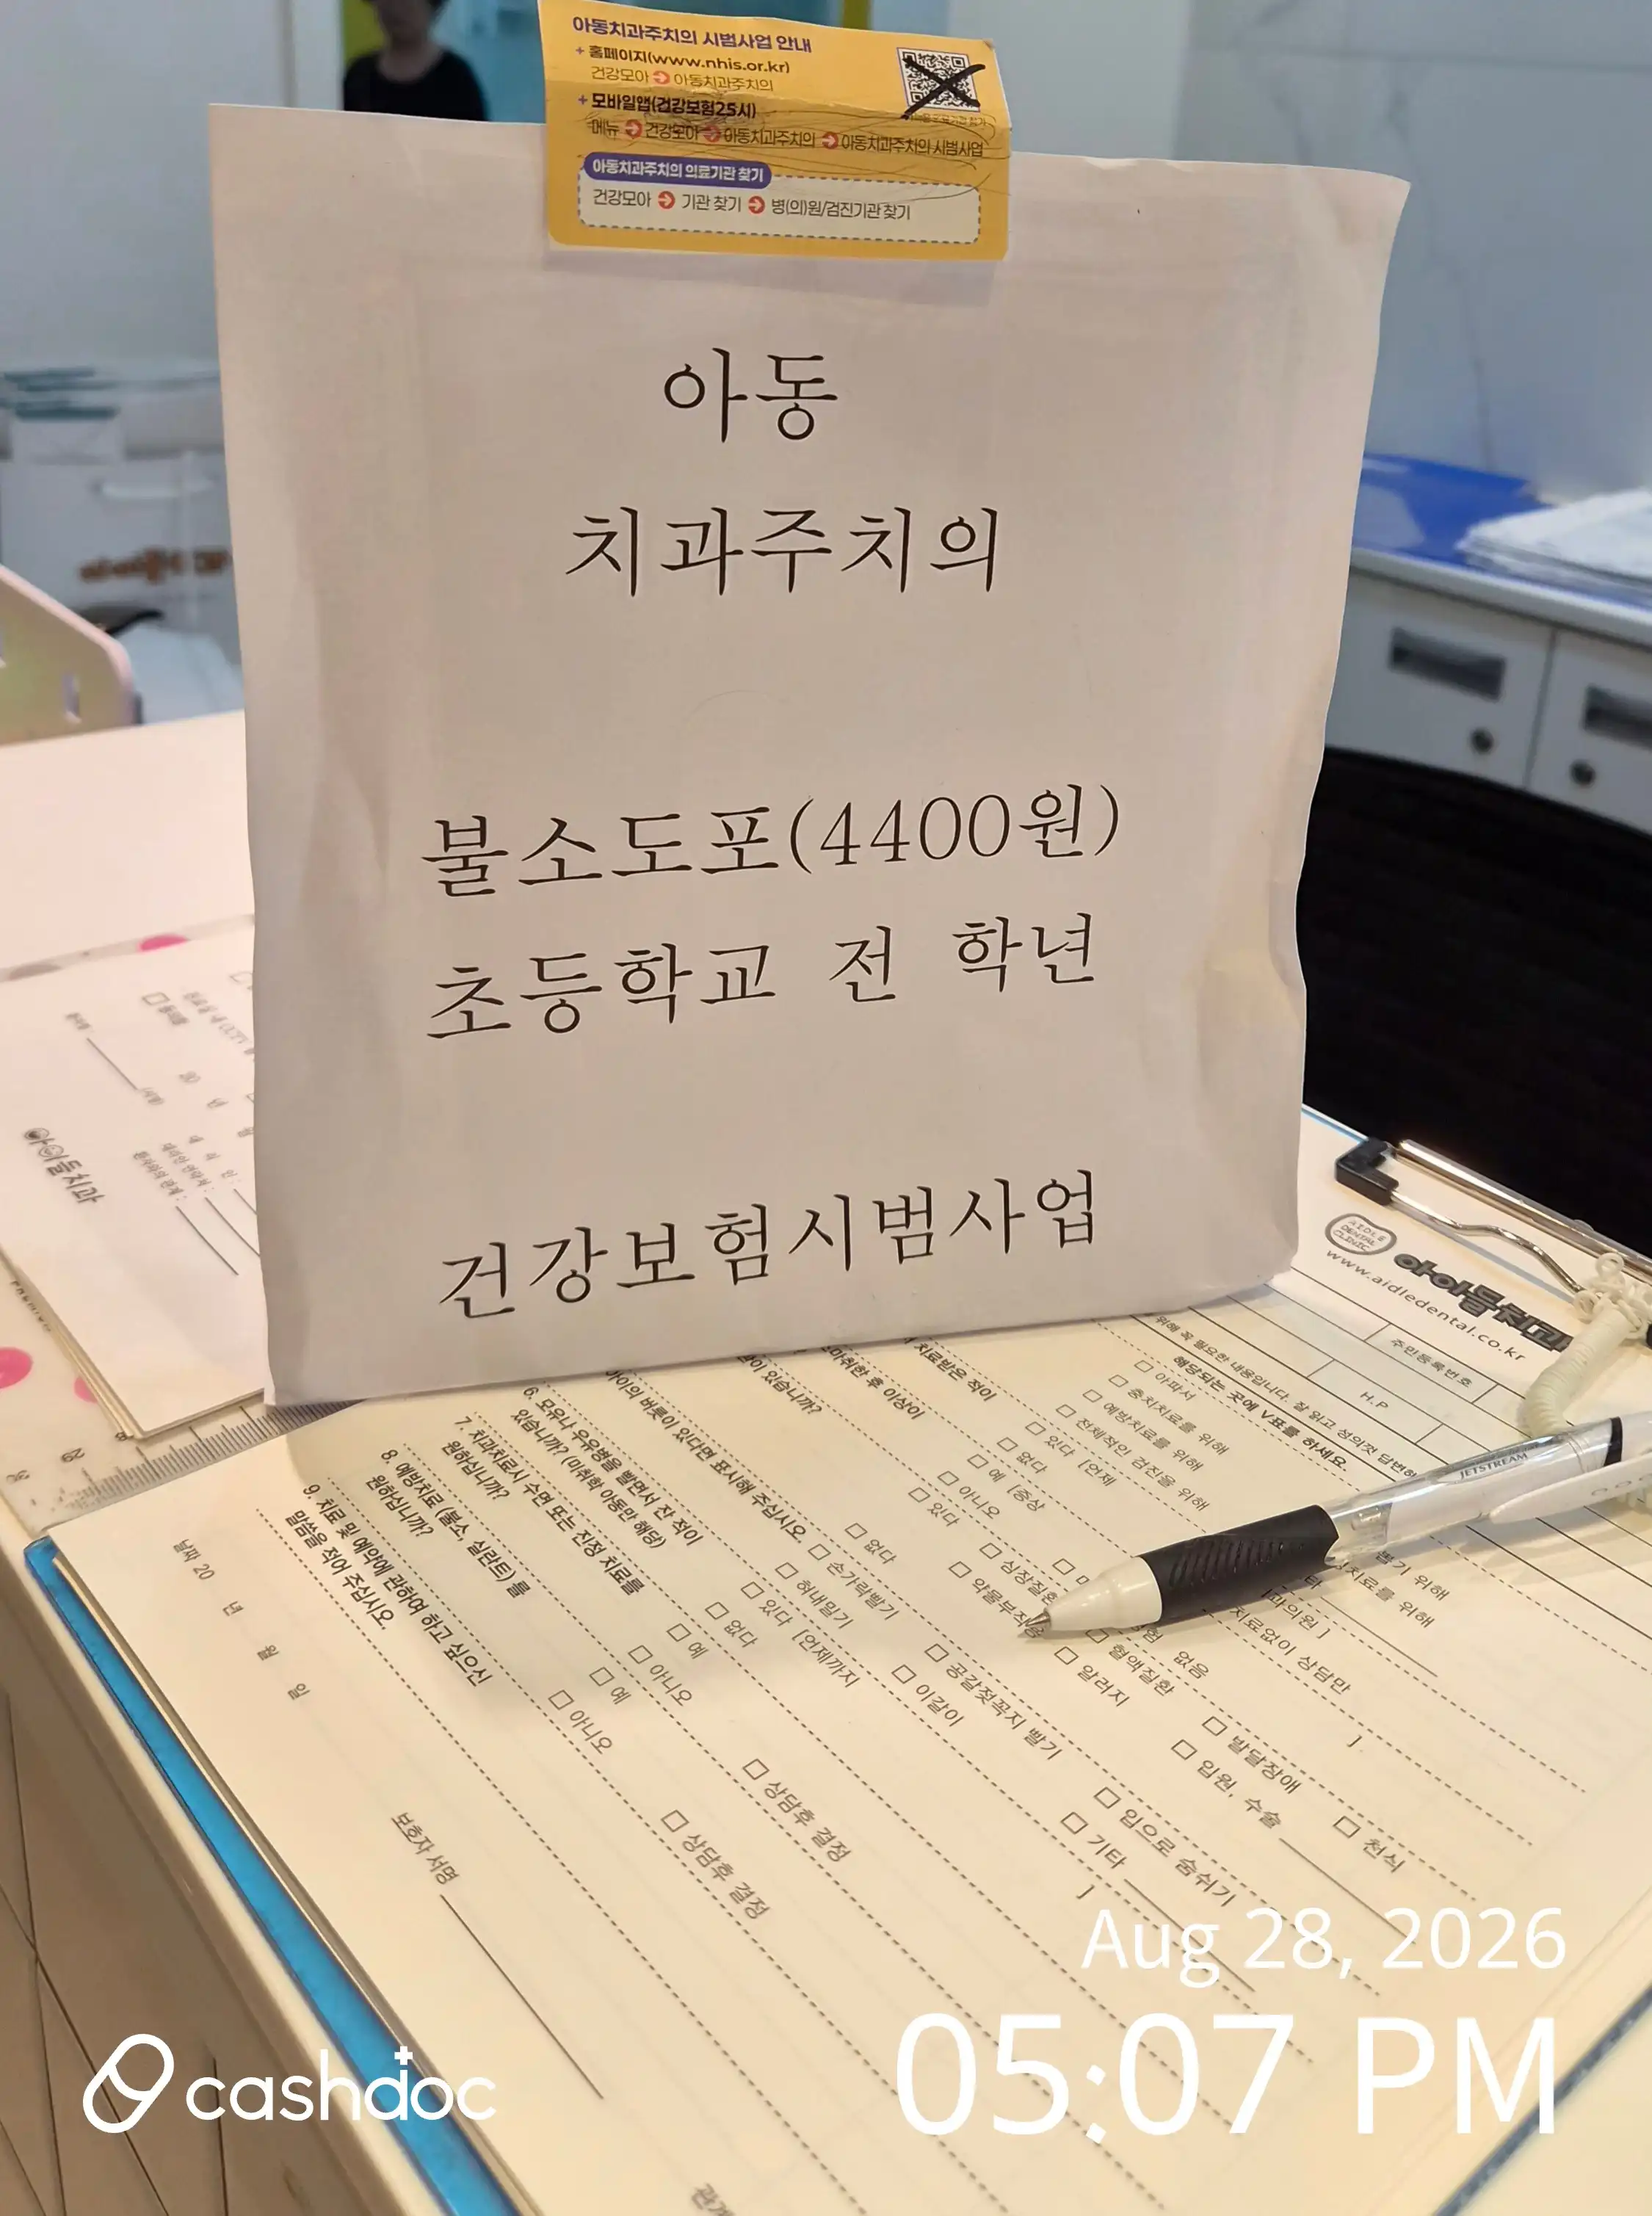 아동치과주치의 시범사업 안내
+ 홈페이지(www.nhis.or.kr)
건강모아 아동치과주치의
+ 모바일앱(건강보험25시)
메뉴 건강모아 아동치과주치의 아동치과주치의 시범사업
아동치과주치의 의료기관 찾기
건강모아 기관 찾기 병(의)원/검진기관 찾기
아동
치과주치의
불소도포(4400원)
초등학교 전 학년
건강보험시범사업
아이들치과
AIDLE DENTAL CLINIC
아이들치과
www.aidledental.co.kr
주민등록번호
H.P
위해 꼭 필요한 내용입니다. 잘 읽고 성의껏 답변
해당되는 곳에 V표를 하세요.
□ 아파서
□ 충치치료를 위해
□ 예방치료를 위해
□ 전체적인 검진을 위해
뽑기 위해
치료를 위해
치료없이 상담만
치료받은 적이
□ 있다 [언제
□ 없다
마취한 후 이상이
□ 예 [증상
□ 아니오
있습니까?
□ 있다
□ 심장질환
□ 약물부작용
없음
□ 혈액질환
□ 알러지
□ 발달장애
□ 입원, 수술
□ 천식
아이의 버릇이 있다면 표시해 주십시오.
□ 없다
□ 손가락빨기
□ 혀내밀기
□ 공갈젖꼭지 빨기
□ 이갈이
□ 입으로 숨쉬기
□ 기타
6. 모유나 우유병을 빨면서 잔 적이
있습니까? (미취학 아동만 해당)
□ 있다 [언제까지 ]
□ 없다
7. 치과치료시 수면 또는 진정 치료를
원하십니까?
□ 예
□ 아니오
□ 상담후 결정
8. 예방치료 (불소, 실란트) 를
원하십니까?
□ 예
□ 아니오
□ 상담후 결정
9. 치료 및 예약에 관하여 하고 싶으신
말씀을 적어 주십시오.
날짜 20 년 월 일
보호자 서명
관계
JETSTREAM
Aug 28, 2026
05:07 PM
cashdoc